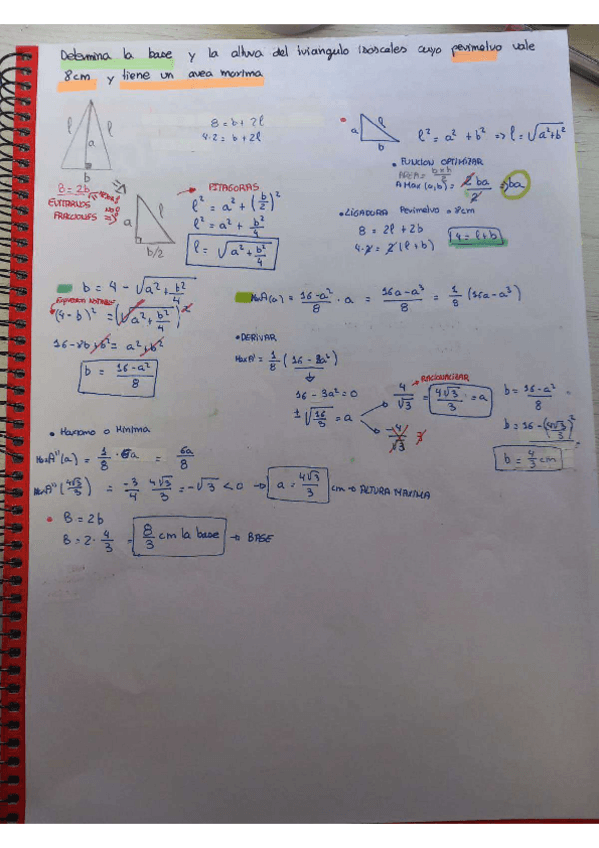 Determina la base y la altura del triangulo isoscales cuyo perimetro vale
8cm y tiene un area maxima
l
l
a
b
8 = b + 2l
4·2 = b + 2l
a
l
b
l² = a² + b² => l = √a²+b²
• FUNCION OPTIMIZAR
AREA = b×h
A Max (a,b) = 2ba / 2 => ba
B = 2b
EVITARNOS
FRACCIONES
a
l
b/2
→ PITAGORAS
l² = a² + (b/2)²
l² = a² + b²/4
l = √a² + b²/4
• LIGADURA Perimetro = 8cm
8 = 2l + 2b
4·2 = 2(l + b)
4 = l + b
b = 4 - √a² + b²/4
(4 - b)² = (√a² + b²/4)²
16 - 8b + b² = a² + b²
b = 16 - a² / 8
MaxA(a) = 16 - a² / 8 · a = 16a - a³ / 8 = 1/8 (16a - a³)
• DERIVAR
MaxA' = 1/8 (16 - 3a²)
16 - 3a² = 0
± √16/3 = a
→ RACIONALIZAR
4/√3 = 4√3/3 = a
-4/√3 ∄
b = 16 - a² / 8
b = 16 - (4√3/3)²
b = 4/3 cm
• Maximo o Minimo
MaxA''(a) = 1/8 · 6a = 6a/8
MaxA''(4√3/3) = -3/4 4√3/3 = -√3 < 0 → a = 4√3/3 cm → ALTURA MAXIMA
• B = 2b
B = 2· 4/3 = 8/3 cm la base → BASE